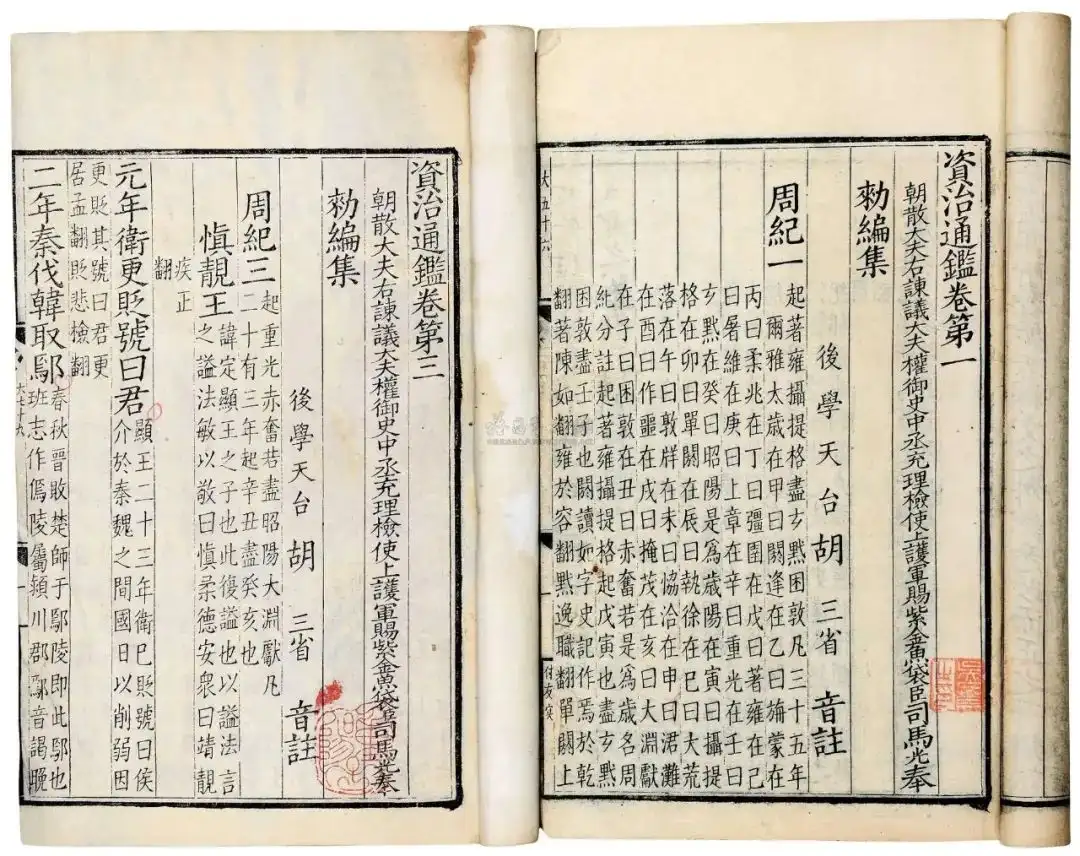 資治通鑑卷第一
朝散大夫右諫議大夫權御史中丞充理檢使上護軍賜紫金魚袋臣司馬光奉
勑編集
後學天台胡三省音註
周紀一
起著雍攝提格盡玄黓困敦凡三十五年
爾雅太歲在甲曰閼逢在乙曰旃蒙在
丙曰柔兆在丁曰彊圉在戊曰著雍在己
曰屠維在庚曰上章在辛曰重光在壬曰
玄黓在癸曰昭陽是爲歲陽在寅曰攝提
格在卯曰單閼在辰曰執徐在巳曰大荒
落在午曰敦牂在未曰協洽在申曰涒灘
在酉曰作噩在戌曰掩茂在亥曰大淵獻
在子曰困敦在丑曰赤奮若是爲歲名周
紀分註起著雍攝提格起戊寅也盡玄黓
困敦盡壬子也閼讀如字史記作焉於乾
翻著陳如翻雍於容翻黓逸職翻單閼上
大五十六
資治通鑑卷第三
朝散大夫右諫議大夫權御史中丞充理檢使上護軍賜紫金魚袋臣司馬光奉
勑編集
後學天台胡三省音註
周紀三
起重光赤奮若盡昭陽大淵獻凡
二十有三年起辛丑盡癸亥也
愼靚王
諱定顯王之子也此複諡也以諡法言
之諡法敏以敬曰愼柔德安衆曰靖靚
疾正
翻
元年衛更貶號曰君
顯王二十三年衛已貶號曰侯
介於秦魏之間國日以削弱因
更貶其號曰君更
居孟翻貶悲檢翻
二年秦伐韓取鄢
春秋晉敗楚師于鄢陵即此鄢也
班志作傿陵屬潁川郡鄢音謁晚